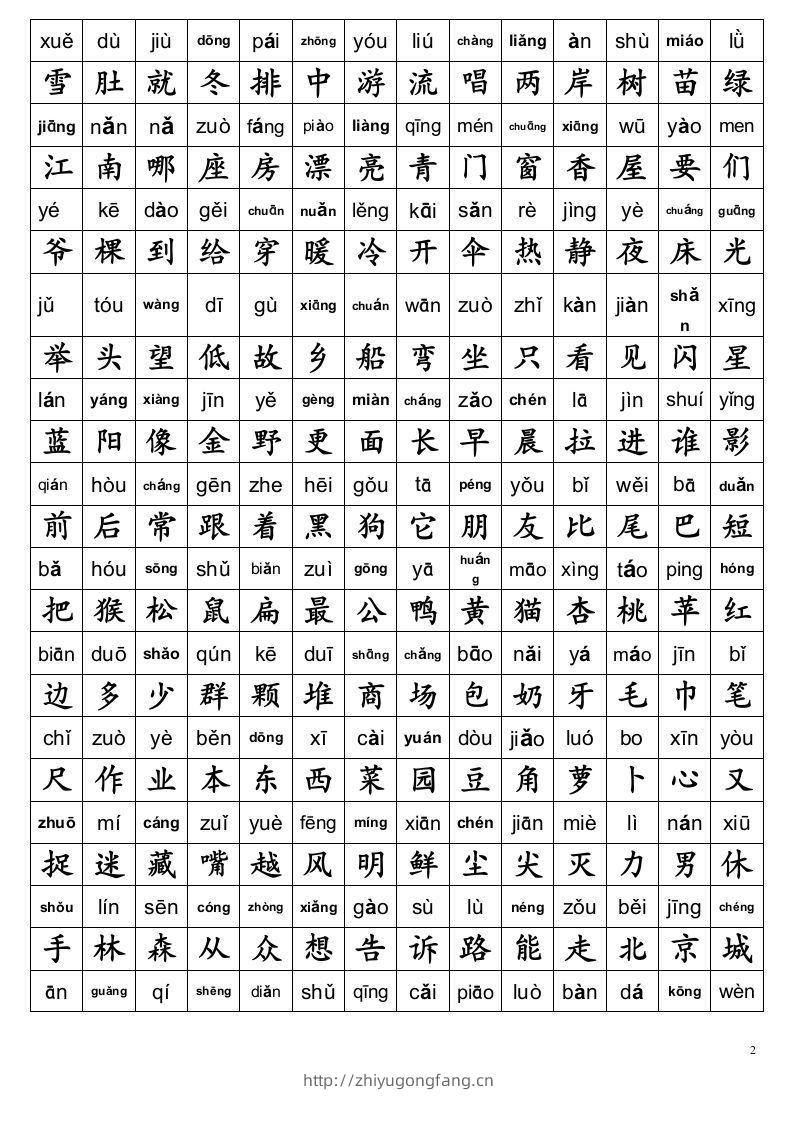 xuě dù jiù dōng pái zhōng yóu liú chàng liǎng àn shù miáo lǜ
雪 肚 就 冬 排 中 游 流 唱 两 岸 树 苗 绿
jiāng nǎn nǎ zuò fáng piào liàng qīng mén chuāng xiāng wū yào men
江 南 哪 座 房 漂 亮 青 门 窗 香 屋 要 们
yé kē dào gěi chuān nuǎn lěng kāi sǎn rè jìng yè chuáng guāng
爷 棵 到 给 穿 暖 冷 开 伞 热 静 夜 床 光
jǔ tóu wàng dī gù xiāng chuán wān zuò zhǐ kàn jiàn shǎn xīng
举 头 望 低 故 乡 船 弯 坐 只 看 见 闪 星
lán yáng xiàng jīn yě gèng miàn cháng zǎo chén lā jìn shuí yǐng
蓝 阳 像 金 野 更 面 长 早 晨 拉 进 谁 影
qián hòu cháng gēn zhe hēi gǒu tā péng yǒu bǐ wěi bā duǎn
前 后 常 跟 着 黑 狗 它 朋 友 比 尾 巴 短
bǎ hóu sōng shǔ biǎn zuì gōng yā huáng māo xìng táo ping hóng
把 猴 松 鼠 扁 最 公 鸭 黄 猫 杏 桃 苹 红
biān duō shǎo qún kē duī shāng chǎng bāo nǎi yá máo jīn bǐ
边 多 少 群 颗 堆 商 场 包 奶 牙 毛 巾 笔
chǐ zuò yè běn dōng xī cài yuán dòu jiǎo luó bo xīn yòu
尺 作 业 本 东 西 菜 园 豆 角 萝 卜 心 又
zhuō mí cáng zuǐ yuè fēng míng xiān chén jiān miè lì nán xiū
捉 迷 藏 嘴 越 风 明 鲜 尘 尖 灭 力 男 休
shǒu lín sēn cóng zhòng xiǎng gào sù lù néng zǒu běi jīng chéng
手 林 森 从 众 想 告 诉 路 能 走 北 京 城
ān guǎng qí shēng diǎn shǔ qīng cǎi piāo luò bàn dá kōng wèn
2
http://zhiyugongfang.cn